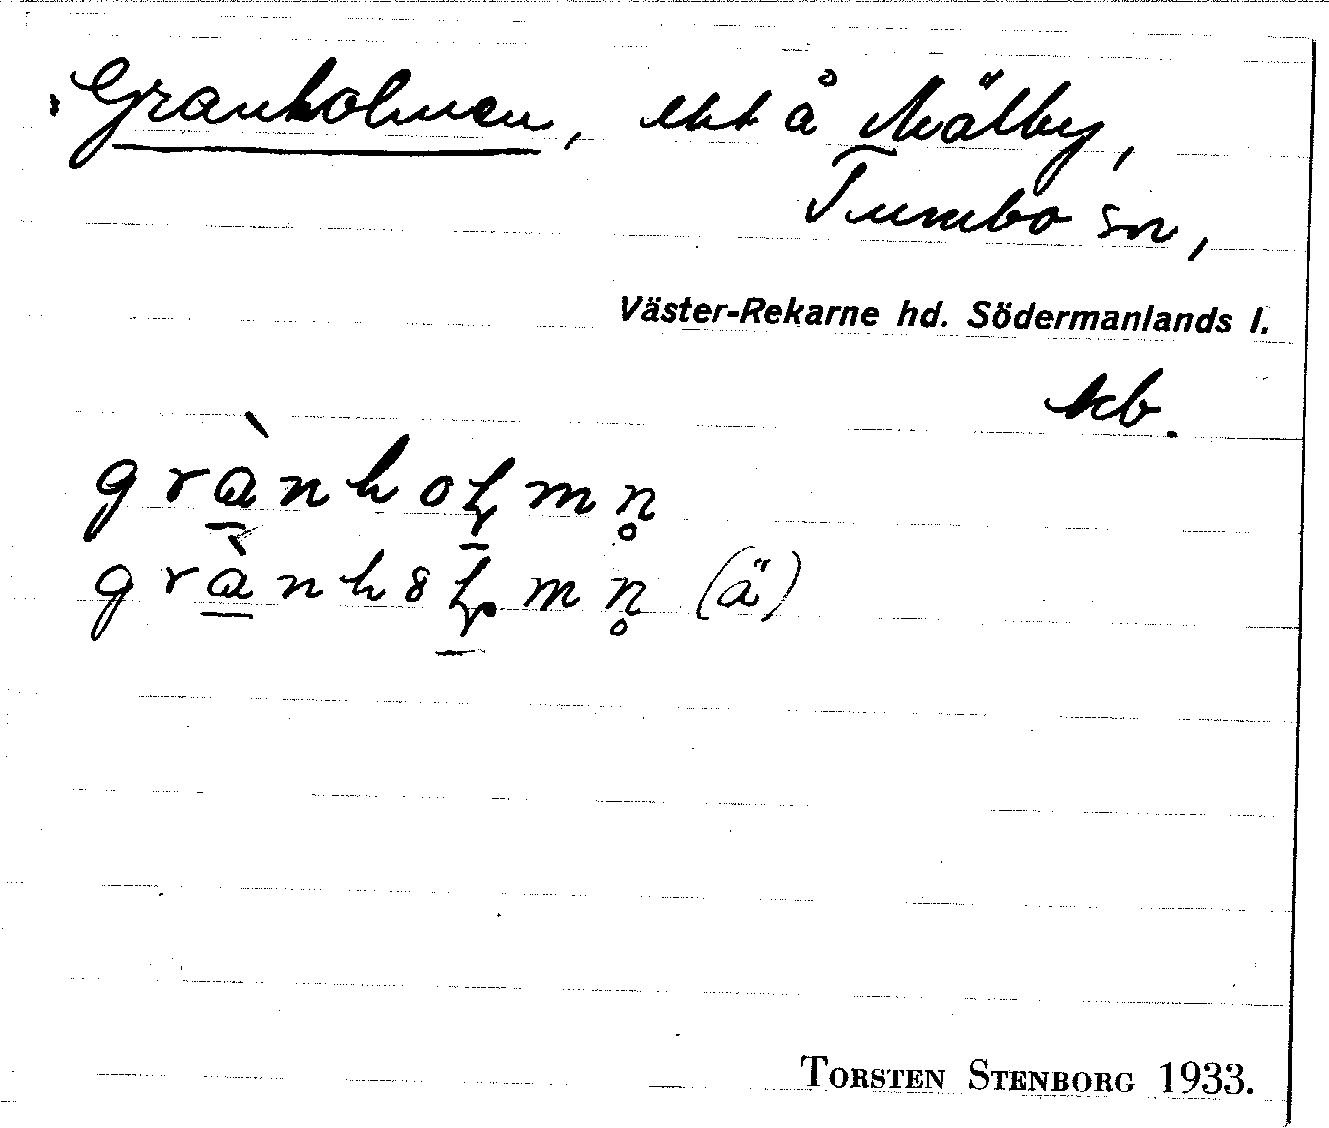 Granholmen, ekt å Mälby,
Tumbo sn,
Väster-Rekarne hd. Södermanlands l.
kb.
grànhoɫmn̥
grành8ɫmn̥ (ä)
TORSTEN STENBORG 1933.